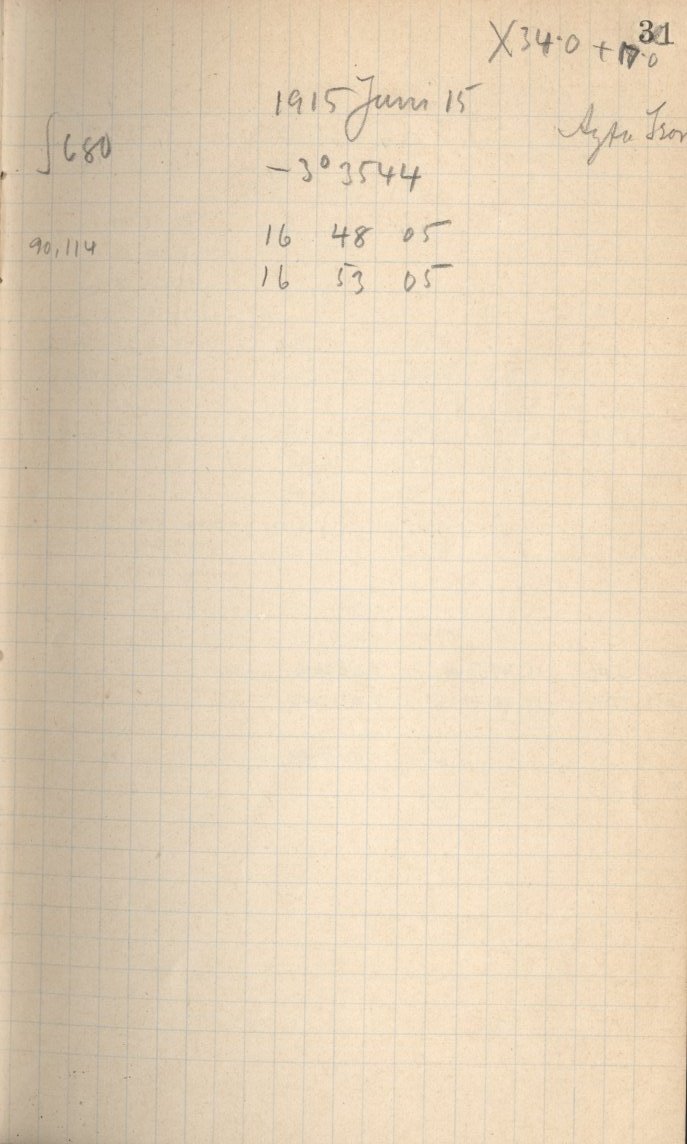 31
X 34.0 + 17.0
1915 Juni 15
∫680
-3° 35 44
90,114
16 48 05
16 53 05